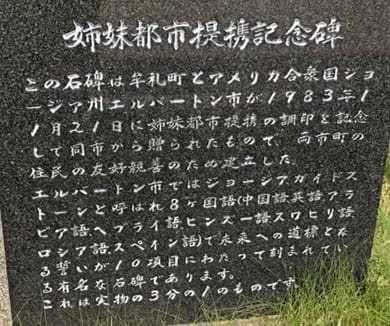 姉妹都市提携記念碑
この石碑は牟礼町とアメリカ合衆国ジョ
ージア州エルバートン市が1983年1
1月21日に姉妹都市提携の調印を記念
して同市から贈られたもので、両市町の
住民の友好親善のため建立した。
エルバートン市ではジョージアガイドス
トーンと呼ばれ8ヶ国語(中国語英語アラ
ビア語ヘブライ語、ヒンズー語スワヒリ語
ロシア語、スペイン語)で未来への道標とな
る誓いが10項目にわたって刻まれてい
る有名な石碑であります。
これは実物の3分の1のものです。